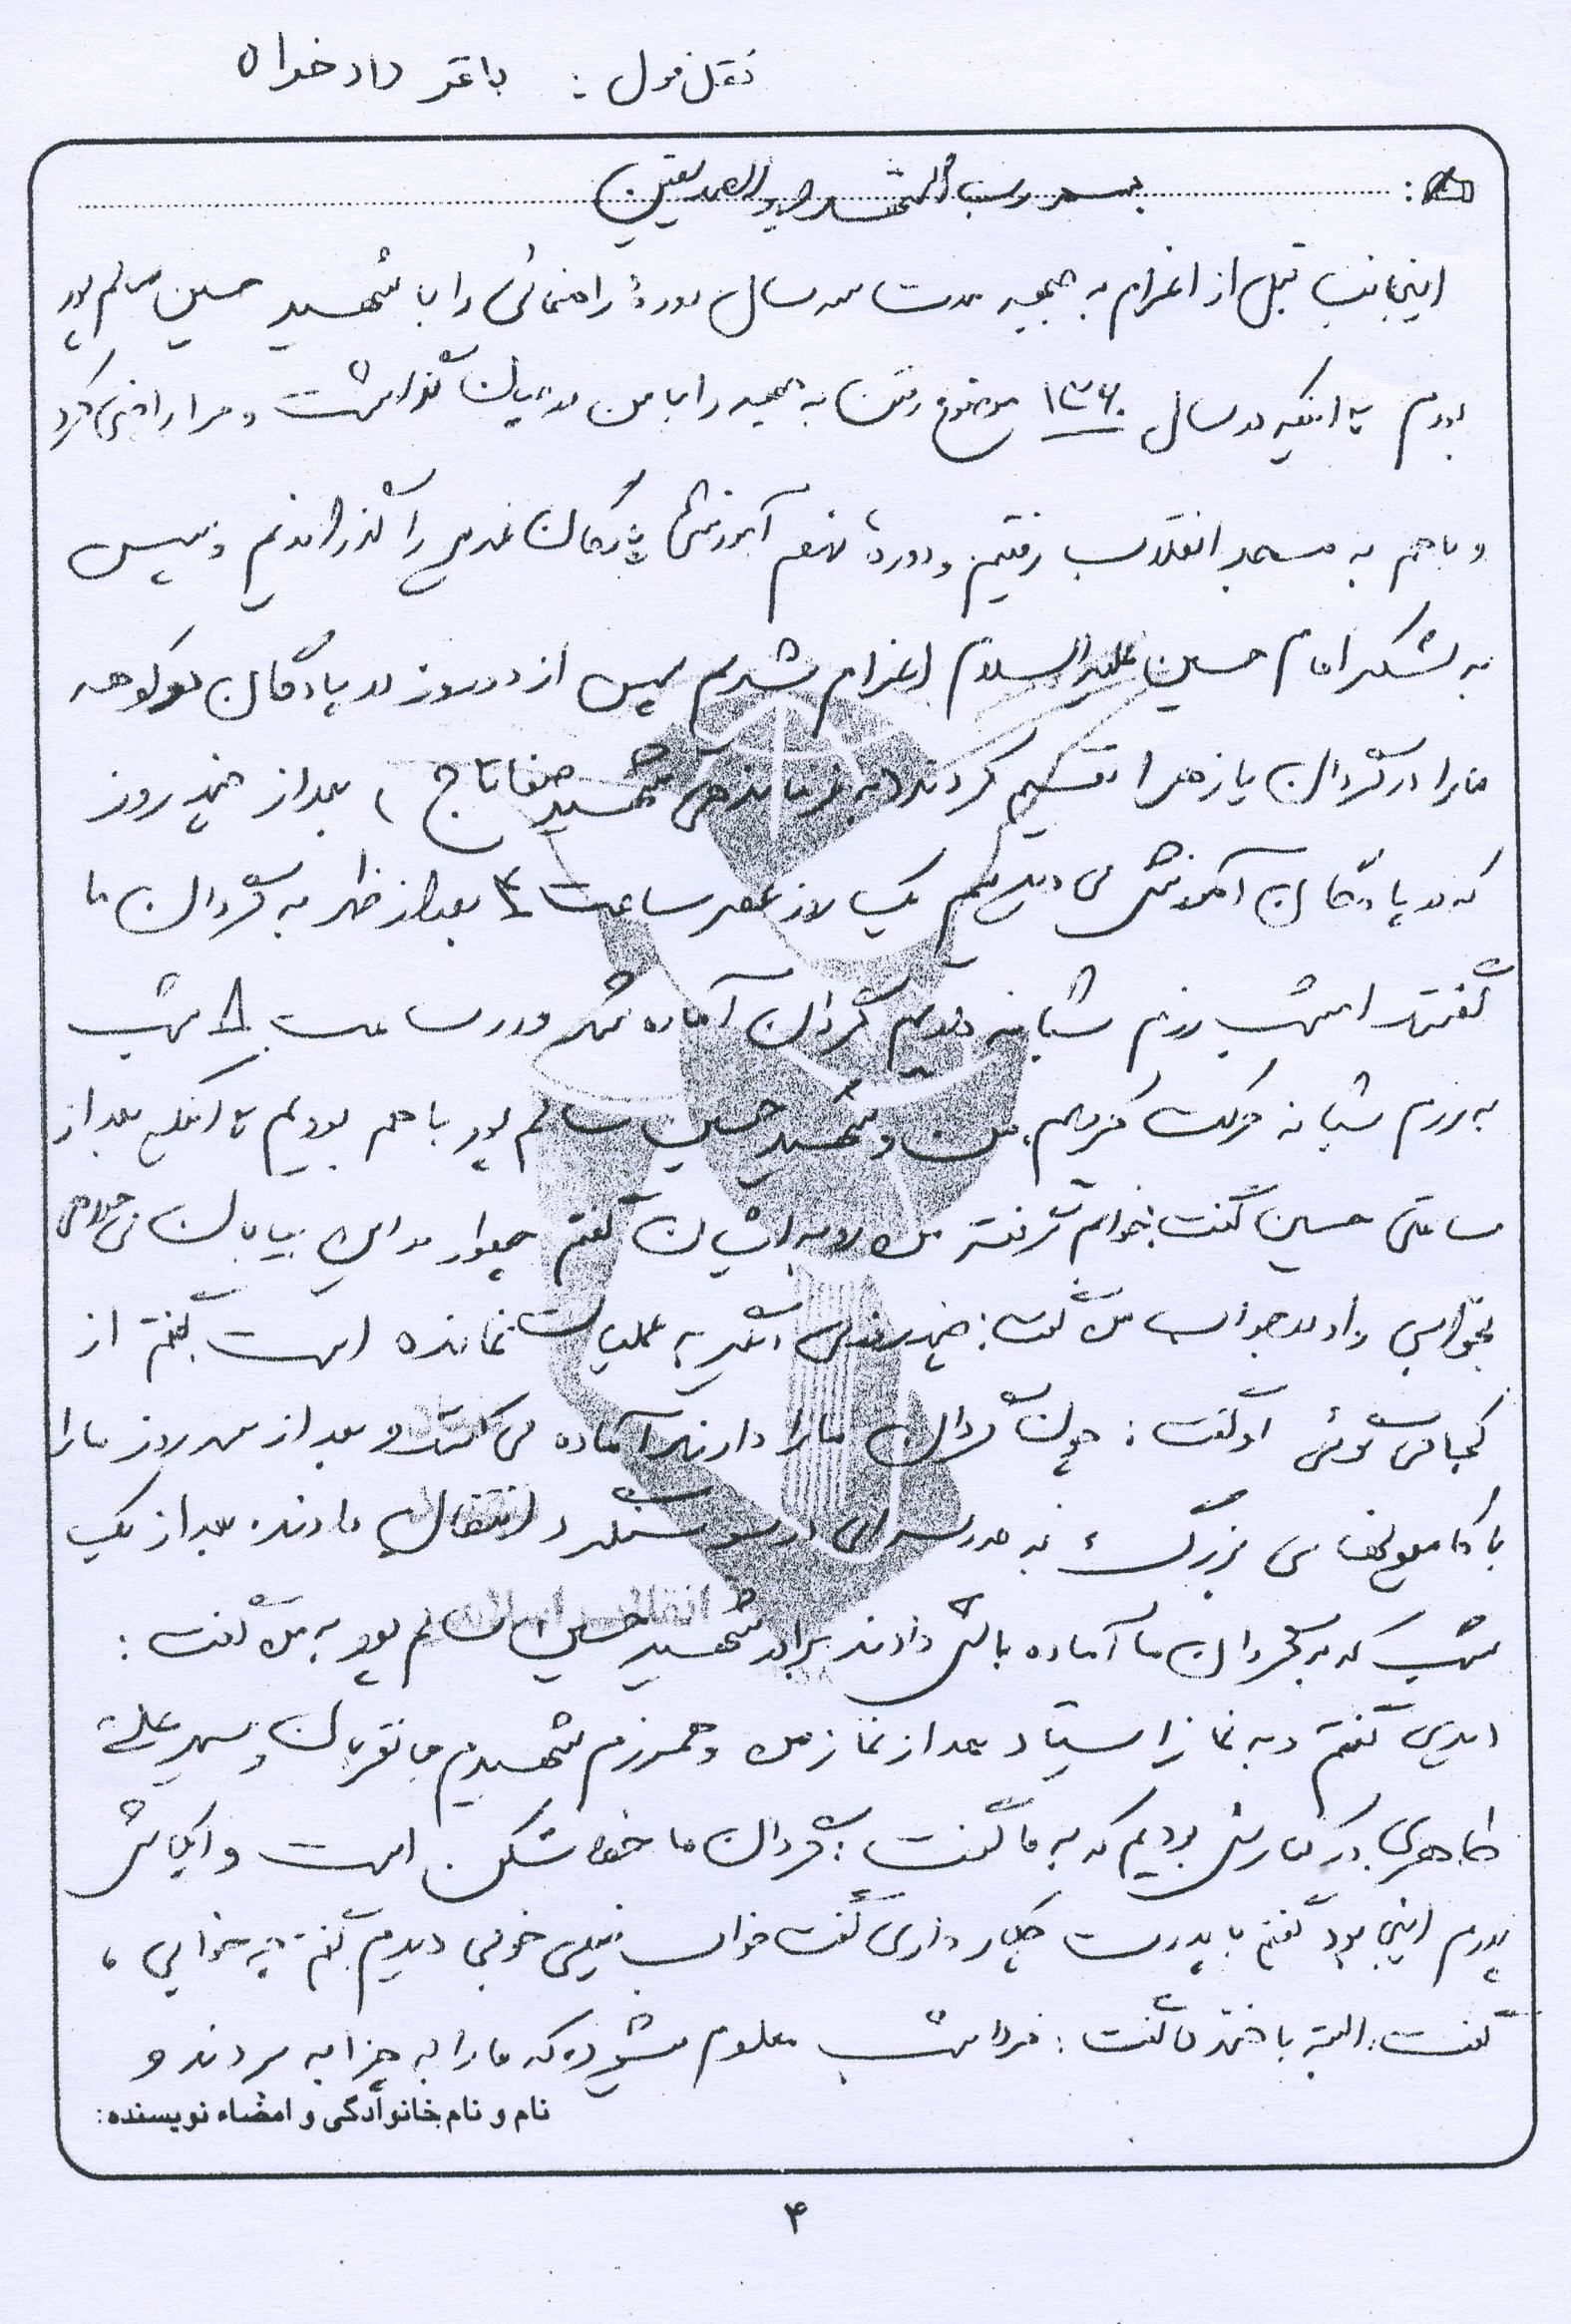 نقل قول : باقر دادخواه
بسم رب الشهدا و الصدیقین
اینجانب قبل از اعزام به جبهه مدت سه سال دورهٔ راهنمائی را با شهید حسین سالم پور
بودم تا اینکه در سال ۱۳۶۰ موضوع رفتن به جبهه را با من در میان گذاشت و مرا راضی کرد
و با هم به مسجد انقلاب رفتیم و دورهٔ آموزشی پادگان غدیر را گذراندیم و سپس
به لشکر امام حسین علیه السلام اعزام شدیم پس از دو روز در پادگان
ما را در گردان یا زهرا تقسیم کردند (به فرماندهی شهید صفاتاج) بعد از چند روز
که در پادگان آموزش می دیدیم یک روز عصر ساعت ۴ بعد از ظهر به گردان ما
گفتند امشب رزم شبانه داریم گردان آماده شد و در ساعت ۸ شب
به رزم شبانه حرکت کردیم. من و شهید حسین سالم پور با هم بودیم تا اینکه بعد از
ساعتی حسین گفت خوابم گرفته من رو به ایشان گفتم چطور در این بیابان می خواهی
بخوابی و او در جواب من گفت: چند روزی دیگر به عملیات نمانده است گفتم از
کجا می گوئی او گفت : چون گردان ما را دارند آماده می کنند و بعد از سه روز ما را
با بزرگ به مدرسه ای در سوسنگرد انتقال دادند. بعد از یک
شب که به گردان ما آماده باش دادند برادر شهید حسین سالم پور به من گفت :
گفتم و به نماز ایستاد بعد از نماز من و همرزم شهیدم و
طاهری در کنارش بودیم که به ما گفت : گردان ما خط شکن است و ای کاش
پدرم اینجا بود گفتم با پدرت چکار داری گفت خواب خیلی خوبی دیدم گفتم چه خوابی ،
گفت: البته با خنده گفت : فردا شب معلوم میشود که ما را به چزابه بردند و
نام و نام خانوادگی و امضاء نویسنده:
۴